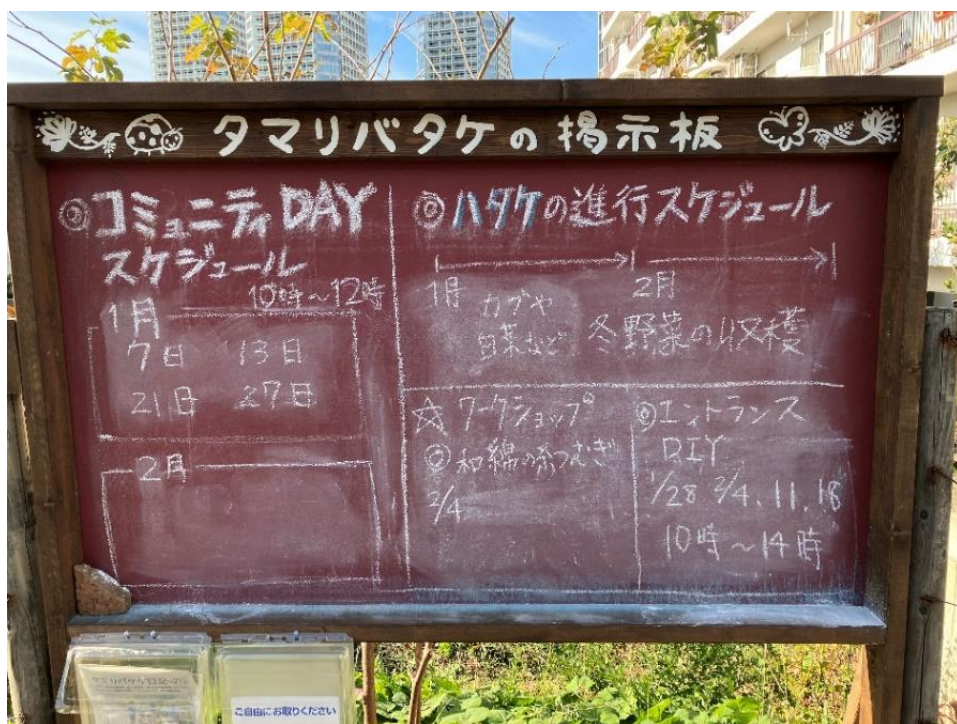 タマリバタケの掲示板
◎コミュニティDAY
スケジュール
10時~12時
1月
7日 13日
21日 27日
2月
◎ハタケの進行スケジュール
1月 2月
カブや
白菜など 冬野菜の収穫
☆ワークショップ
◎和綿の糸つむぎ
2/4
◎エントランス
DIY
1/28 2/4.11.18
10時~14時
ご自由にお取りください